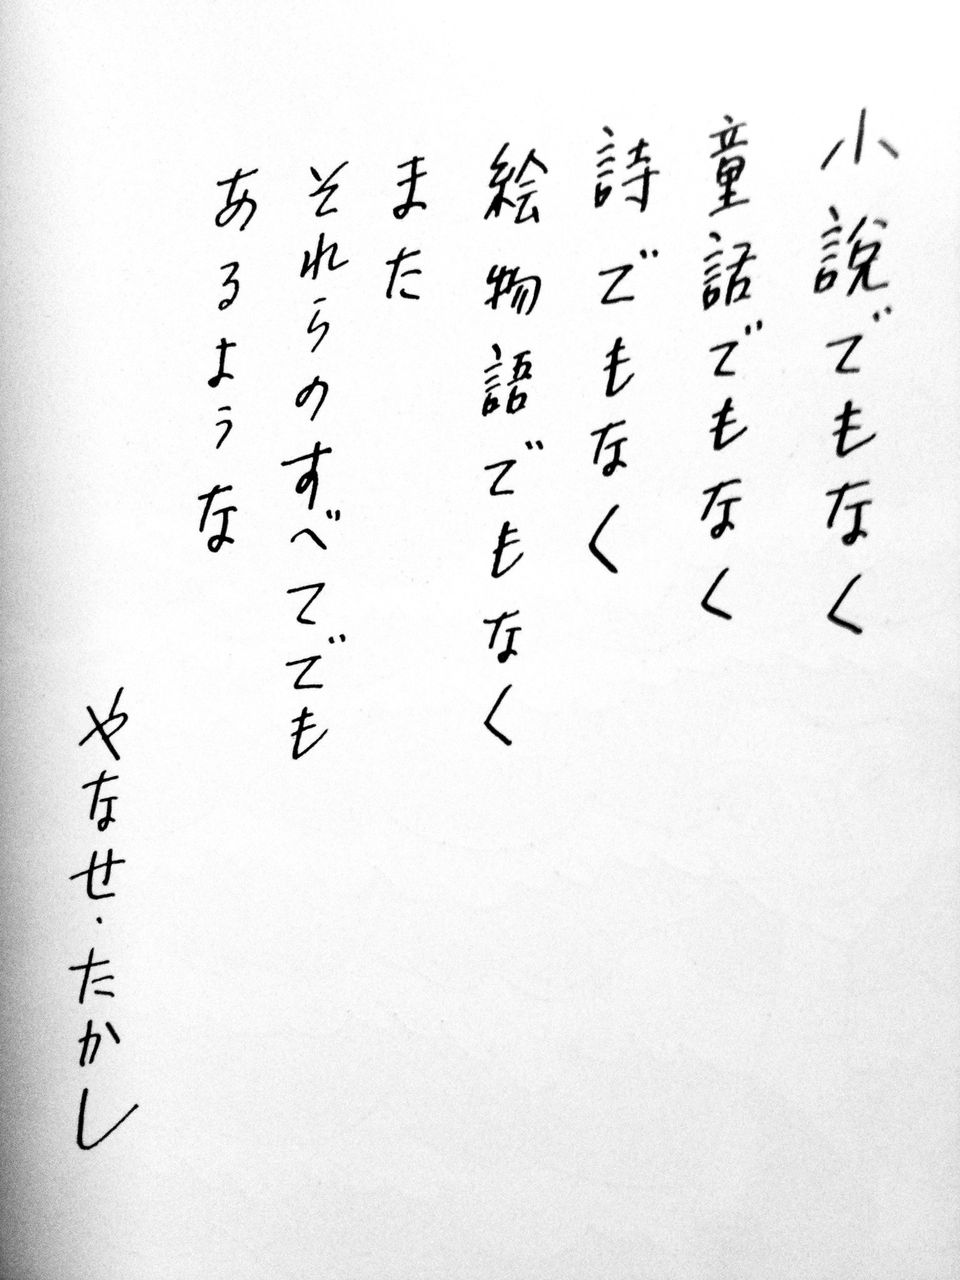 小説でもなく
童話でもなく
詩でもなく
絵物語でもなく
また
それらのすべてでも
あるような
やなせ・たかし